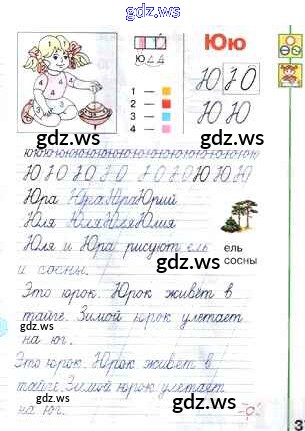 gdz.ws
Юю
Ю
1 —
2 —
3 —
4 —
Ю Ю
Ю Ю
gdz.ws
gdz.ws
Юра Юра Юра Юрий
Юля Юля Юля Юлия
Юля и Юра рисуют ель
и сосны.
ель
сосны
gdz.ws
Это юрок. Юрок живёт в
тайге. Зимой юрок улетает
на юг.
gdz.ws
Это юрок. Юрок живет в
тайге. Зимой юрок улетает
на юг.
gdz.ws
3